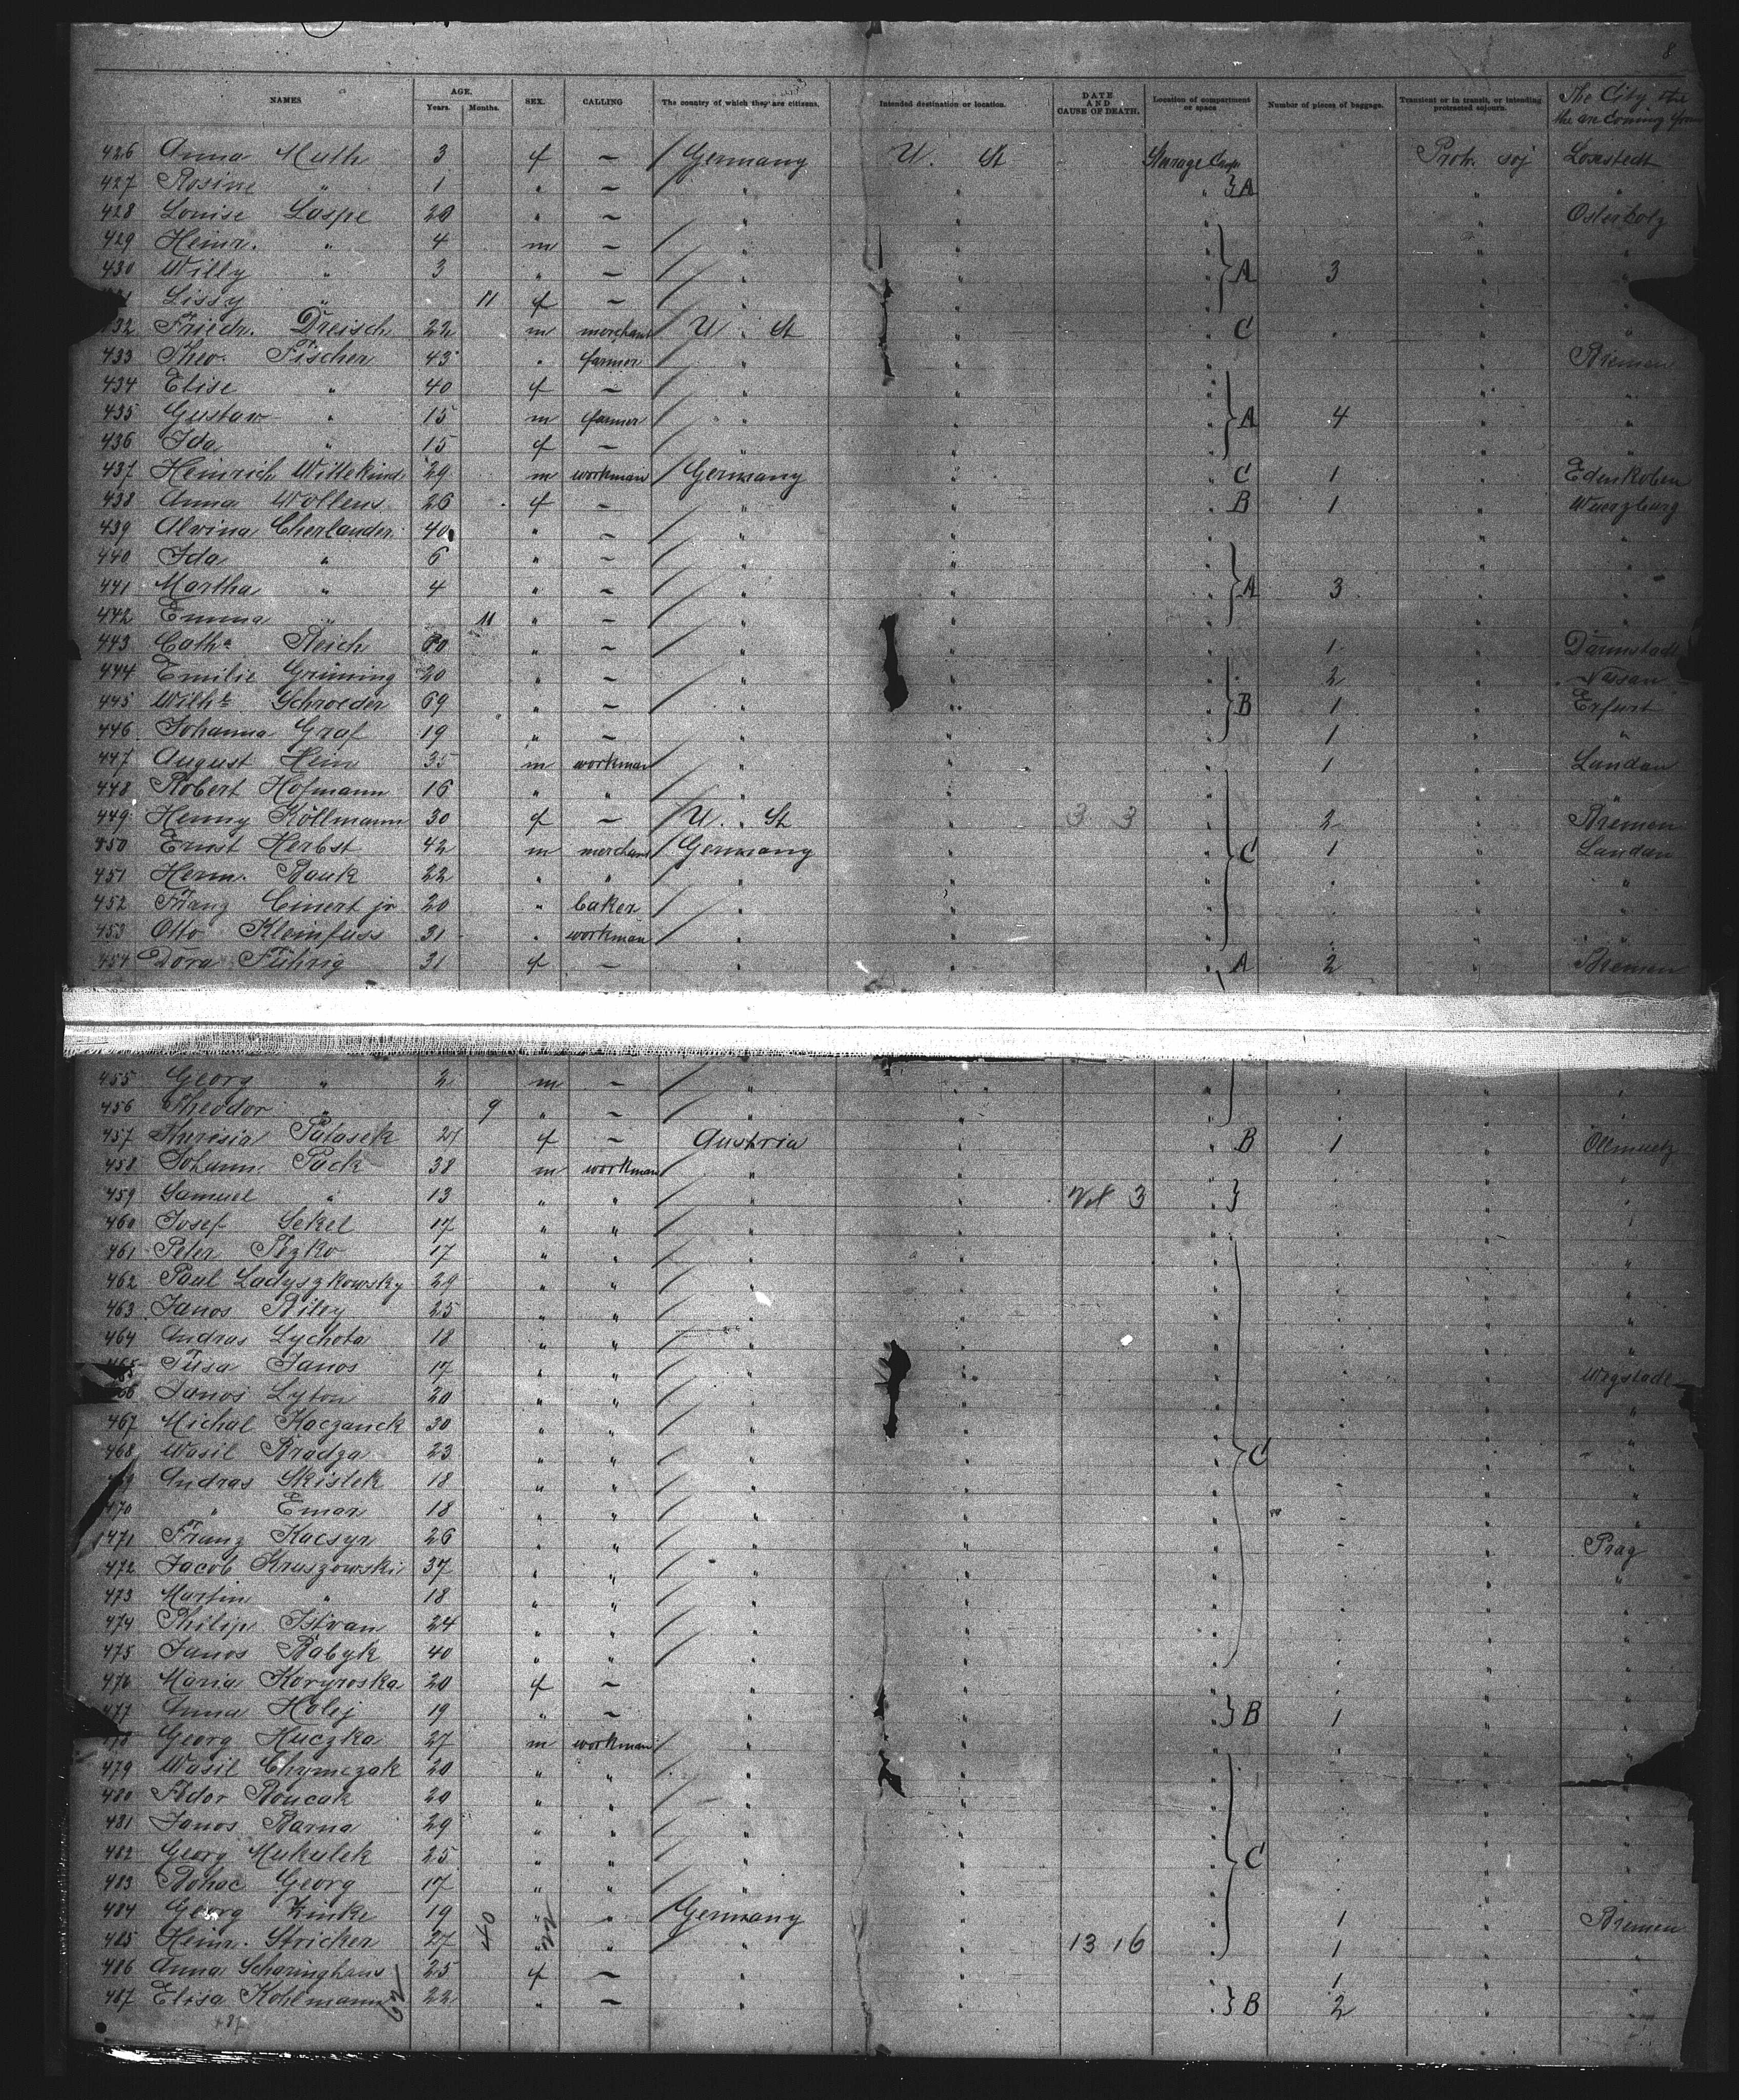 8
NAMES AGE. Years. Months. SEX. CALLING The country of which they are citizens. Intended destination or location. DATE AND CAUSE OF DEATH. Location of compartment or space Number of pieces of baggage. Transient or in transit, or intending protracted sojourn. The City
the are Coming from
426 Anna Muth 3 f – Germany U. St Prot. soj Loxstedt
427 Rosine " 1 " – " " " } A " "
428 Louise Laspe 20 " – " " " " Osterholz
429 Heinr. " 4 m – " " " "
430 Willy " 3 " – " " " A 3 " "
Lissy " 11 f – " " " "
432 Friedr. Dreisch 22 m merchant U. St " C " "
433 Theo. Fischer 43 " farmer " " " " Bremen
434 Elise " 40 f – " " " " "
435 Gustav " 15 m farmer " " " A 4 " "
436 Ida " 15 f – " " " " "
437 Heinrich Wittekind 29 m workman Germany " " C 1 " Edenkoben
438 Anna Wollens 26 f – " " " B 1 " Wuerzburg
439 Alvina 40 " – " " " " "
440 Ida " 6 " – " " " " "
441 Martha " 4 " – " " " A 3 " "
442 Emma " 11 " – " " " " "
443 Cath.a Reich " – " " " 1 " Darmstadt
444 Emilie Grüning 20 " – " " " 2 " Nassau
445 Wilh. Schroeder 69 " – " " " B 1 " Erfurt
446 Johanna Graf 19 " – " " " 1 " "
447 August Hein 35 m workman " " " 1 " Landau
448 Robert Hofmann 16 " " " " " " "
449 Henny Köllmann 30 f – U. St " 3 3 " 2 " Bremen
450 Ernst Herbst 42 m merchant Germany " " C 1 " Landau
451 Herm. Bauk 22 " " " " " " "
452 Franz Einert jr 20 " baker " " " " "
453 Otto Kleinfuss 31 " workman " " " " "
454 Dora Führig 31 f – " " " A 2 " Bremen
455 Georg " 2 m – " " " " "
456 Theodor " 9 " – " " " " "
457 Theresia Palasek 21 f – Austria " B 1 " Ollmuetz
458 Johann Puck 38 m workman " " " " "
459 Samuel " 13 " " " " 3 " } " "
460 Josef Sekel 17 " " " " " " "
461 Peter 17 " " " " " " "
462 Paul Ladyszkowsky 29 " " " " " " "
463 Janos Riley 25 " " " " " " "
464 Andras Lychota 18 " " " " " " "
465 Pusa Janos 17 " " " " " " Wegstadt
466 Janos Lyton 20 " " " " " " "
467 Michal Kaczanek 30 " " " " " " "
468 Wasil Bradza 23 " " " " " C " "
Andras Skislek 18 " " " " " " "
470 " Emar 18 " " " " " " "
471 Franz Kacsyn 26 " " " " " " Prag
472 Jacob Kruszowski 37 " " " " " " "
473 Martin " 18 " " " " " " "
474 Philip Istvan 24 " " " " " " "
475 Janos Babyk 40 " " " " " " "
476 Maria Koryroska 20 f – " " " " "
477 Anna Holej 19 " – " " " } B 1 " "
478 Georg Huczka 27 m workman " " " " "
479 Wasil Chymczak 20 " " " " " " "
480 Fedor Roucak 20 " " " " " " "
481 Janos Barna 29 " " " " " " "
482 Georg Mukulek 25 " " " " " C " "
483 Bohac Georg 17 " " " " " " "
484 Georg Zinke 19 " " Germany " " 1 " Bremen
485 Heinr. Stricker 27 " " " " 13 16 " 1 " "
486 Anna Scharinghaus 25 f – " " " 1 " "
487 Elisa Kohlmann 22 " – " " " } B 2 " "
40